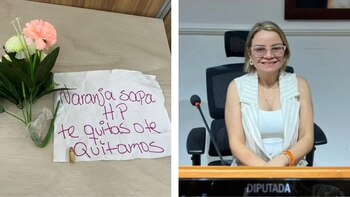 Naranja sapa
HP
te quitas o te
Quitamos
DIPUTADA